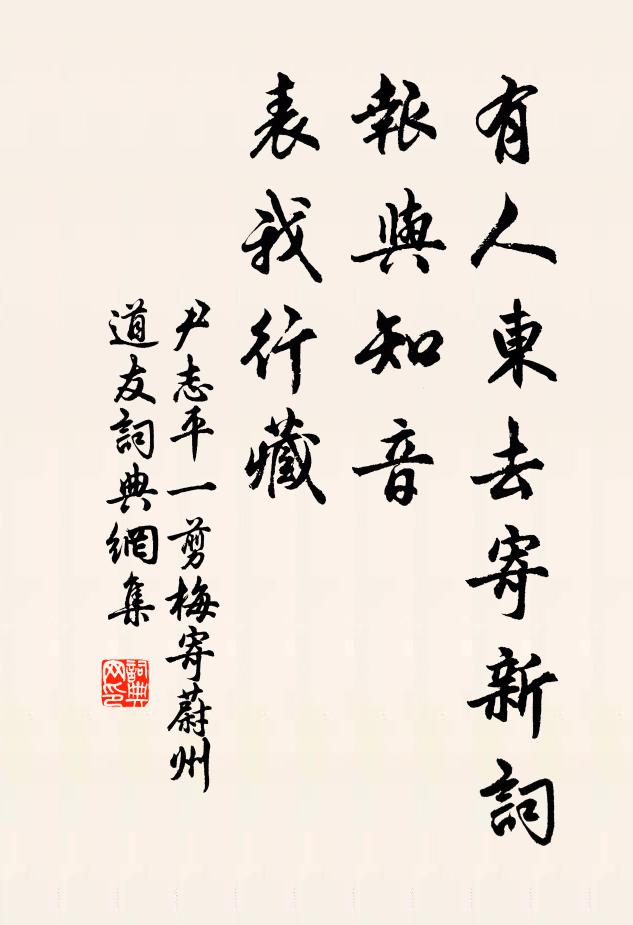 有人東去寄新詞
報與知音
表我行藏
尹志平一剪梅寄蔚州
道友詞典網集
詞典网印